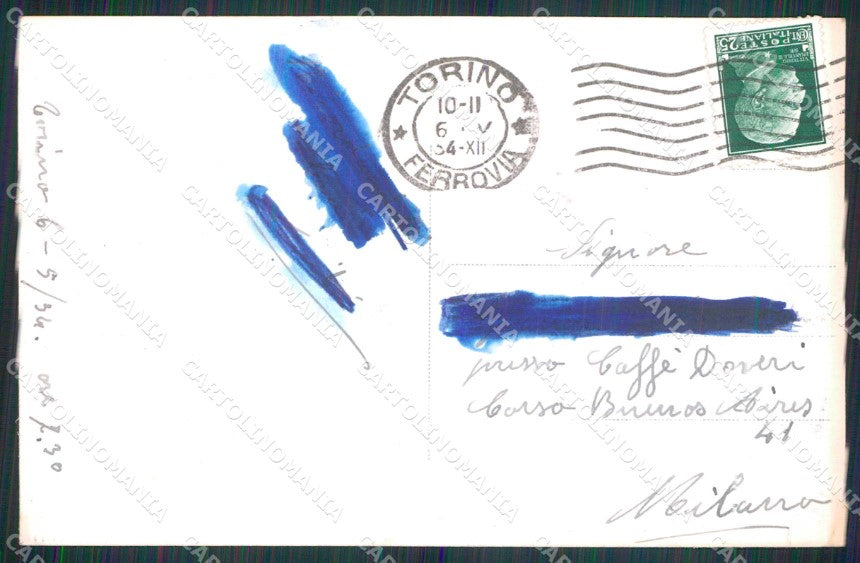 TORINO
10-11
6 V
34-XII
FERROVIA
CENT 25
POSTE ITALIANE
VITTORIO EMANUELE III
RE
Torino 6-5/34. ore 7.30
Signore
presso Caffè Doveri
Corso Buenos Aires
41
Milano
CARTOLINOMANIA